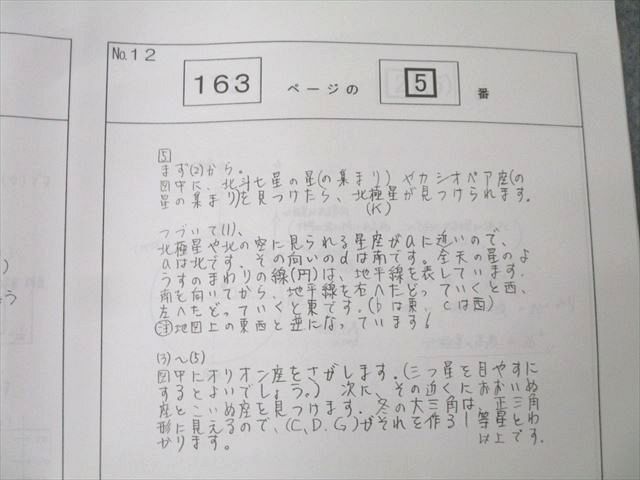 No.12
163 ページの 5 番
5
まず(2)から。
図中に、北斗七星の星(の集まり)やカシオペア座(の
星の集まり)を見つけたら、北極星が見つけられます。
(K)
つづいて(1)、
北極星や北の空に見られる星座がaに近いので、
aは北です。その向いのdは南です。全天の星のよ
うすのまわりの線(円)は、地平線を表しています。
南を向いてから、地平線を右へたどっていくと西、
左へたどっていくと東です。(bは東、cは西)
注地図上の東西と逆になっています!
(3)~(5)
図中にオリオン座をさがします。(三つ星を目やすに
するとよいでしょう。) 次に、その近くにおおいぬ
座とこいぬ座を見つけます。冬の大三角は、正三角
形に見えるので、(C、D、G)がそれを作る1等星とわ
かります。
以上です。
)
う